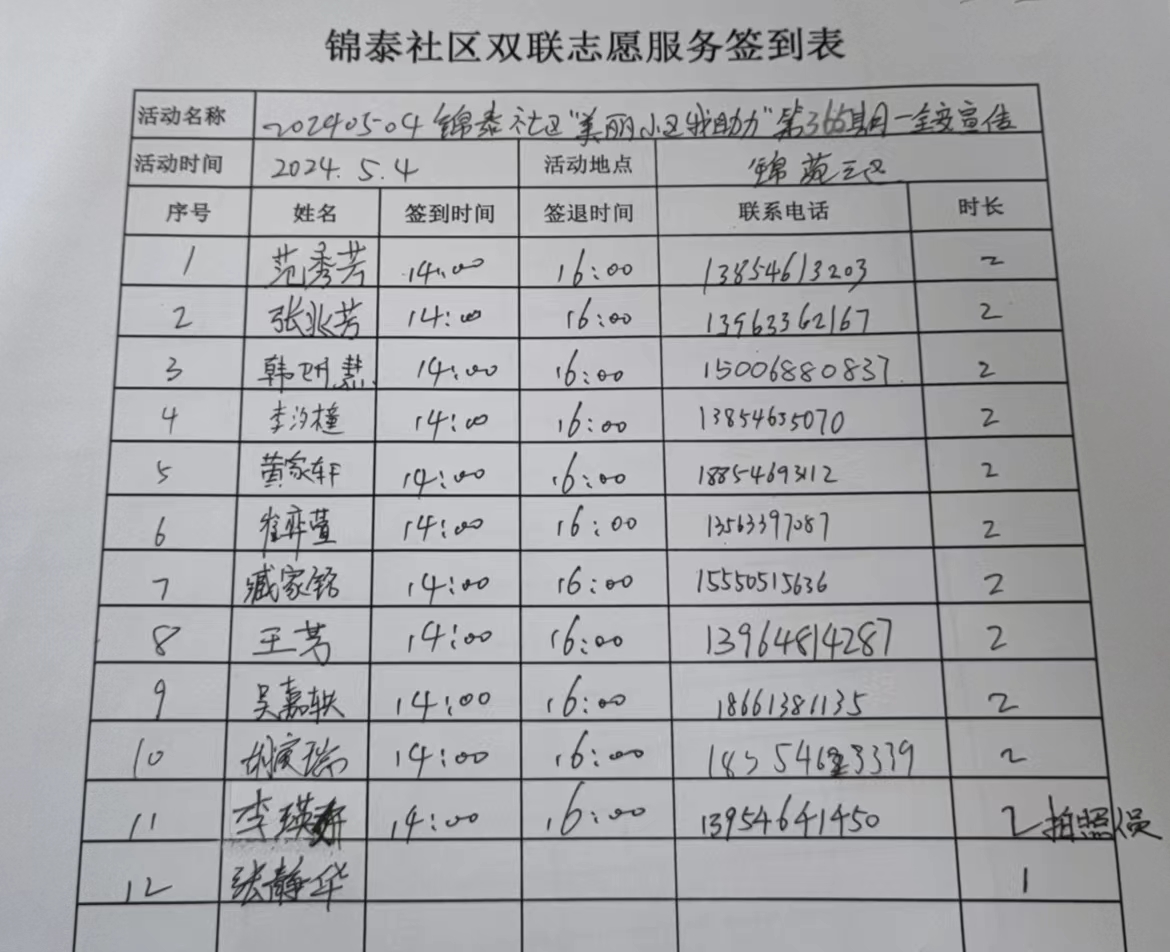 锦泰社区双联志愿服务签到表
活动名称 20240504锦泰社区"美丽小区我助力"第366期一安宣传
活动时间 2024.5.4 活动地点 锦苑三区
序号 姓名 签到时间 签退时间 联系电话 时长
1 范秀芳 14:00 16:00 13854613203 2
2 张兆芳 14:00 16:00 13963362167 2
3 韩明慧 14:00 16:00 15006880837 2
4 李汐橦 14:00 16:00 13854635070 2
5 黄家轩 14:00 16:00 18854693112 2
6 崔弈萱 14:00 16:00 13563397087 2
7 臧家铭 14:00 16:00 15550515636 2
8 王芳 14:00 16:00 13964814287 2
9 吴嘉轶 14:00 16:00 18661381135 2
10 胡演瑞 14:00 16:00 2
11 李瑛 14:00 16:00 13954641450 2 拍照人员
12 张静华 1